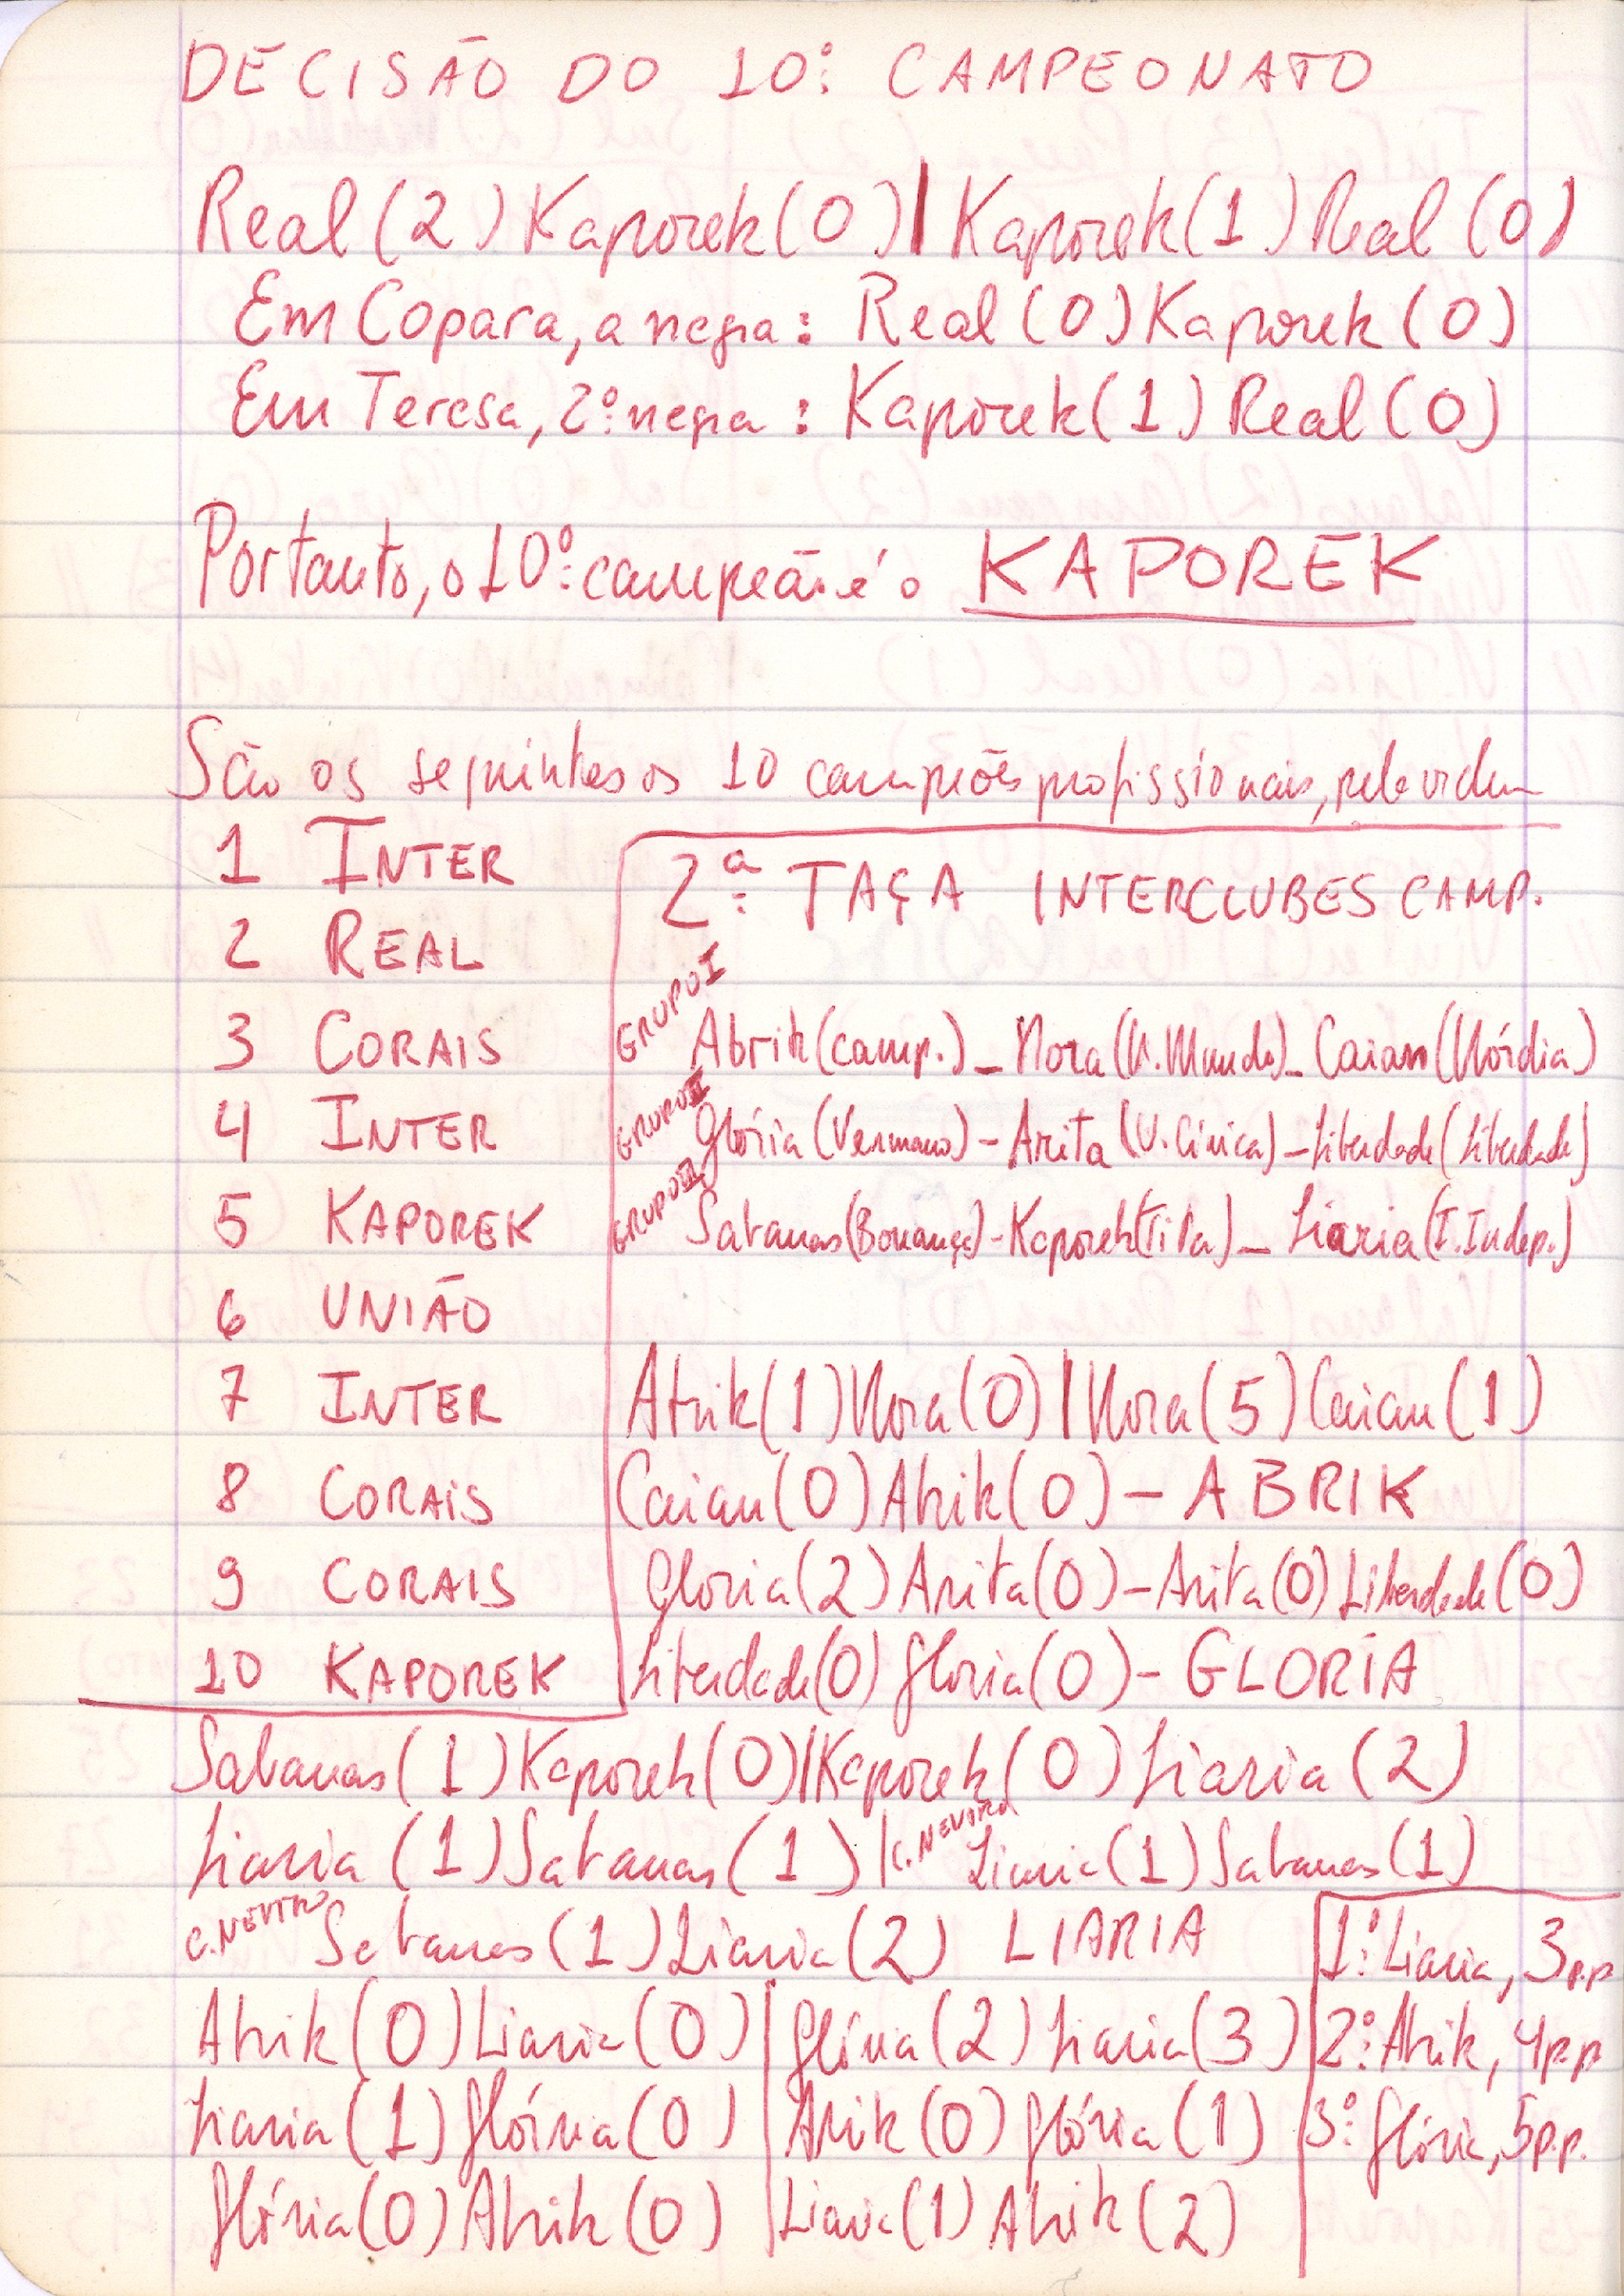 DECISÃO DO 10º CAMPEONATO
Real (2) Kaporek (0) | Kaporek (1) Real (0)
Em Copara, a negra: Real (0) Kaporek (0)
Em Teresa, 2º negra: Kaporek (1) Real (0)
Portanto, o 10º campeão é o KAPOREK
São os seguintes os 10 campeões profissionais, pela ordem
1 INTER
2 REAL
3 CORAIS
4 INTER
5 KAPOREK
6 UNIÃO
7 INTER
8 CORAIS
9 CORAIS
10 KAPOREK
2ª TAÇA INTERCLUBES CAMP.
GRUPO I Abrik (camp.) - Nora (N. Mundo) - Caiau (Nórdia)
GRUPO II Glória (Vermano) - Arita (U. Cívica) - Liberdade (Liberdade)
GRUPO III Satanas (Bonança) - Kaporek (Tita) - Liaria (I. Indep.)
Abrik (1) Nora (0) | Nora (5) Caiau (1)
Caiau (0) Abrik (0) - ABRIK
Gloria (2) Arita (0) - Arita (0) Liberdade (0)
Liberdade (0) Gloria (0) - GLORIA
Satanas (1) Kaporek (0) | Kaporek (0) Liaria (2)
Liaria (1) Satanas (1) | C. NEUTRO Liaria (1) Satanas (1)
C. NEUTRO Satanas (1) Liaria (2) LIARIA
Abrik (0) Liaria (0) | Glória (2) Liaria (3)
Liaria (1) Glória (0) | Abrik (0) Glória (1)
Glória (0) Abrik (0) | Liaria (1) Abrik (2)
1º Liaria, 3 p.p
2º Abrik, 4 p.p
3º Glória, 5 p.p.